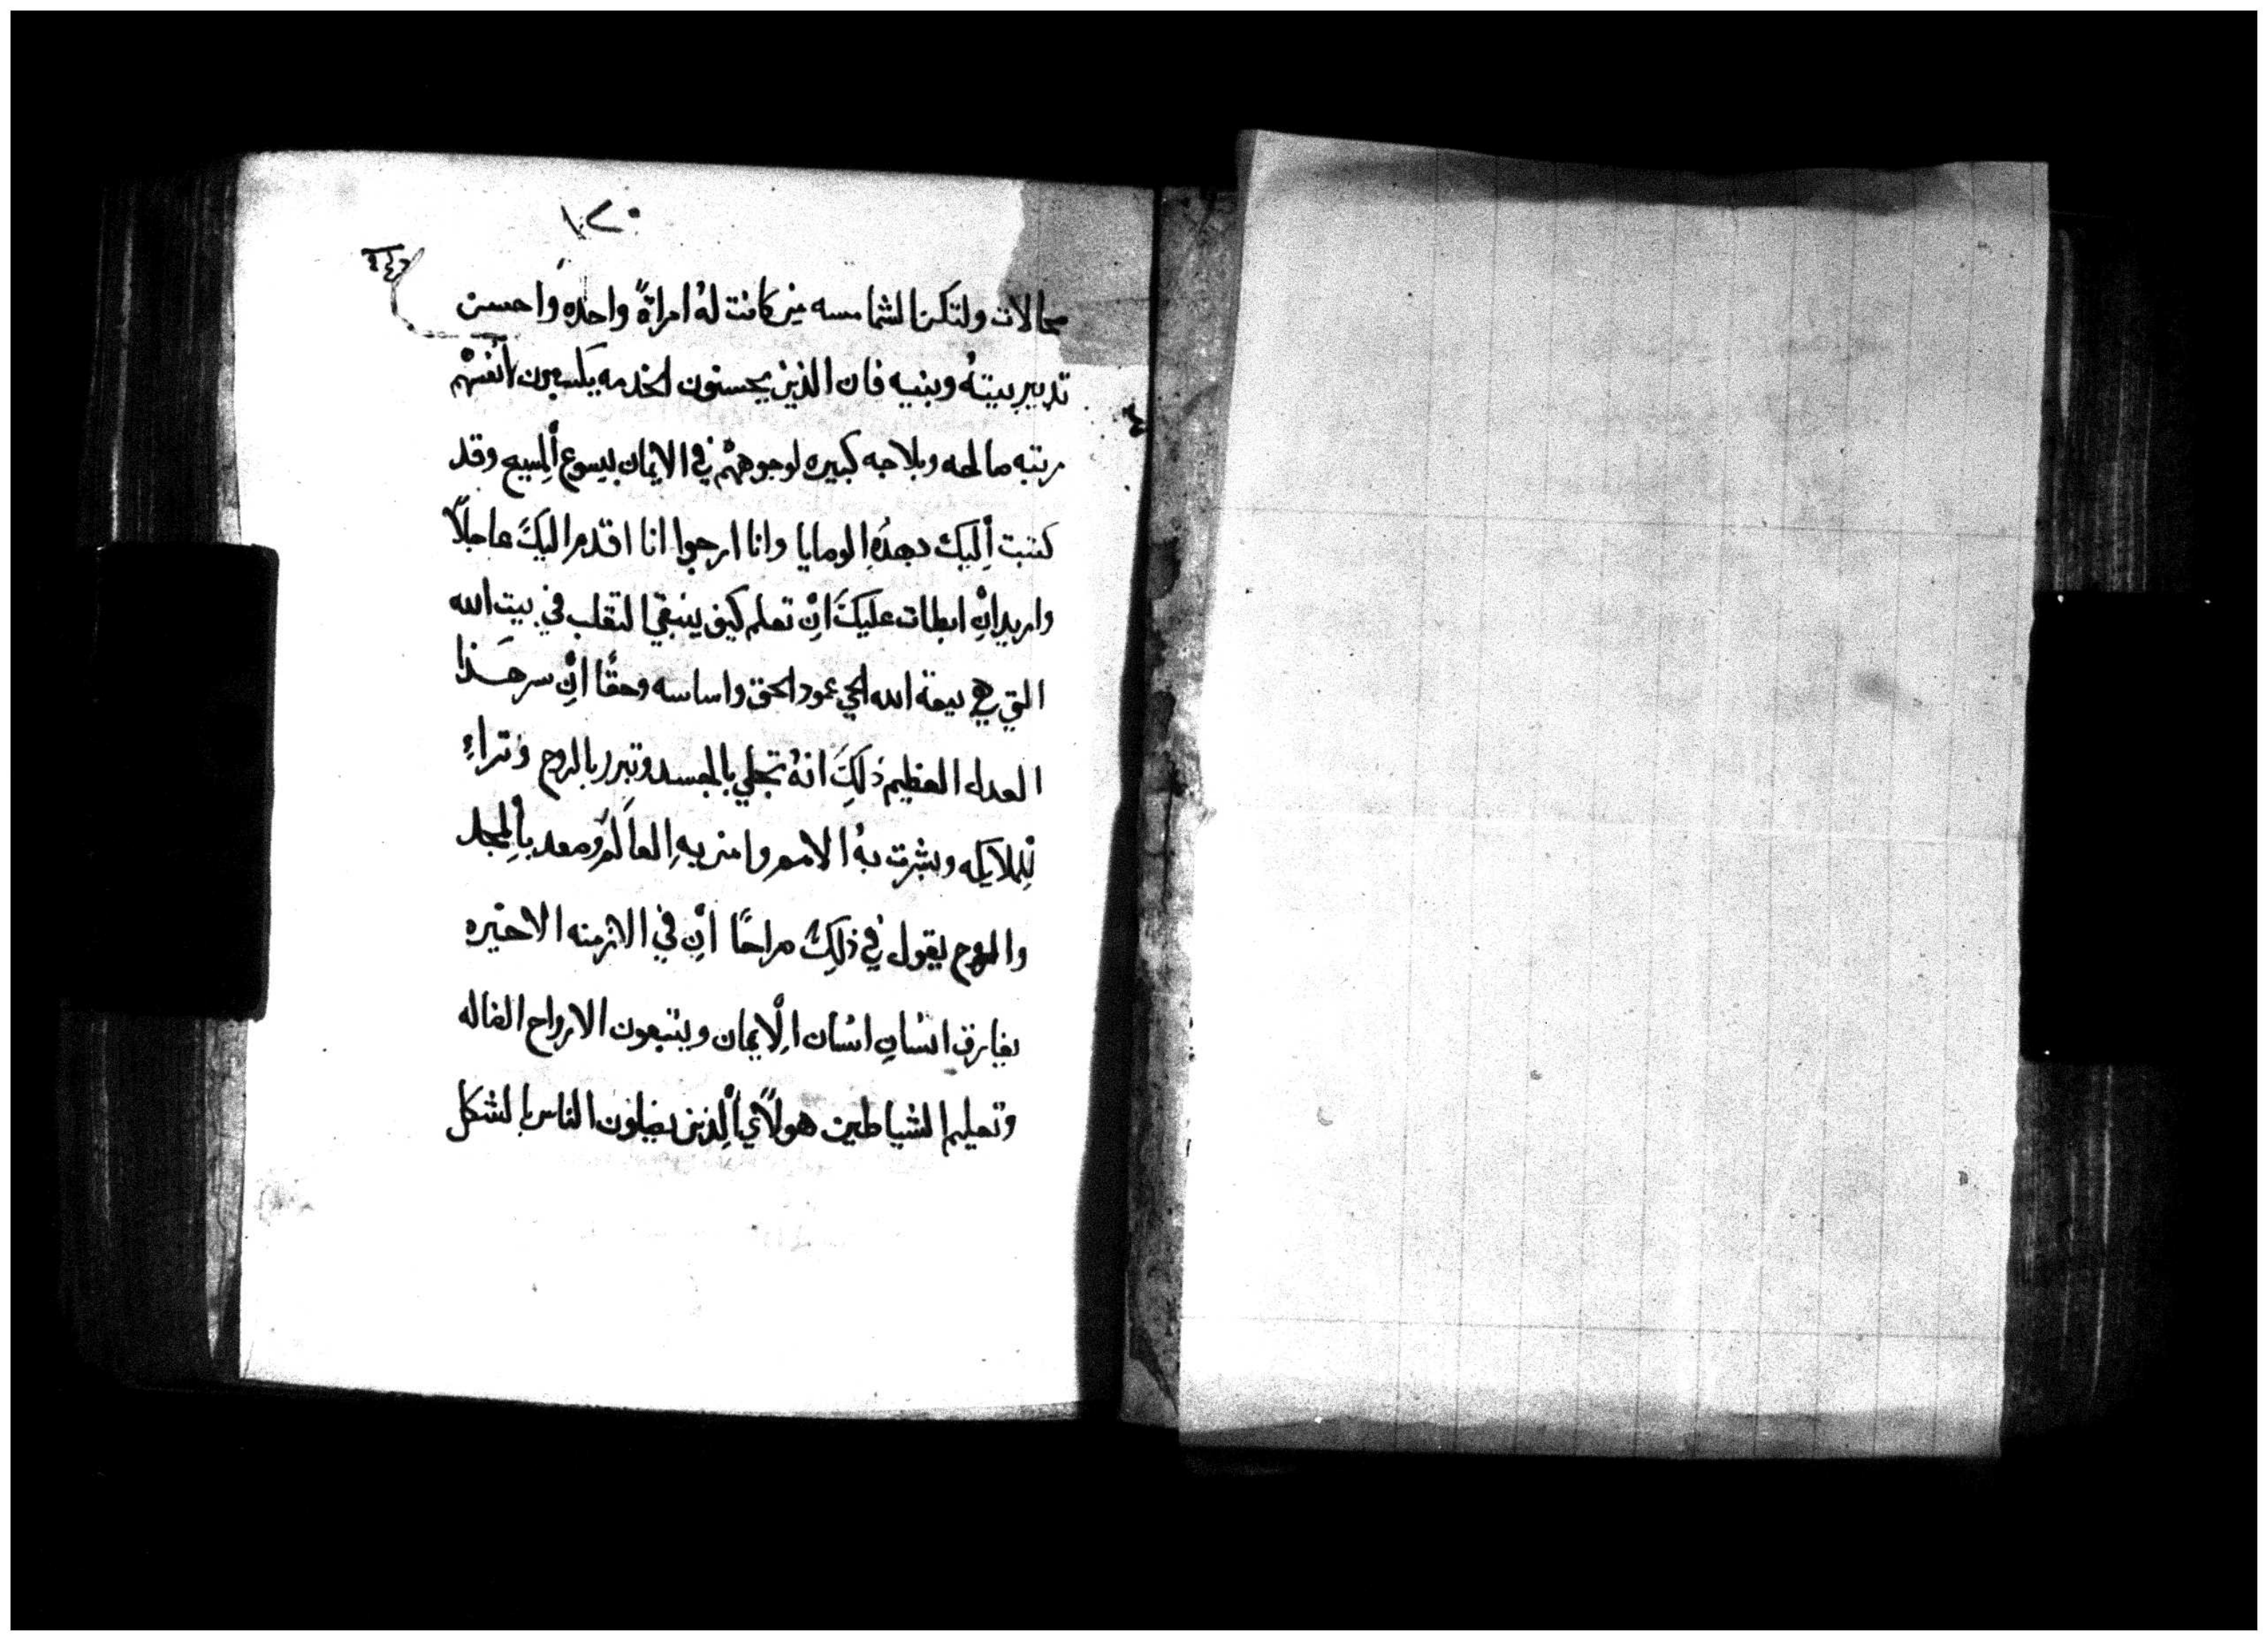 صحالات ولتكن الشمامسه من كانت له امراةً واحده واحسن
تدبير بيته وبنيه فان الذين يحسنون الخدمه يكسبون لانفسهم
مرتبه صالحه وبلاجه كبيره لوجوههم في الايمان بيسوع المسيح وقد
كتبت أليك بهذه الوصايا وانا ارجوا انا اقدم اليك عاجلاً
واريد ان ابطات عليك ان تعلم كيف ينبغي التقلب في بيت الله
التي هي بيعة الله الحي عمود الحق واساسه وحقًا أن سر هذا
العدل العظيم ذلك انه تجلي بالجسد وتبرر بالروح وتراء
للملايكه وبشرت به الامم وامن به العالم وصعد بالمجد
والروح يقول في ذلك صراحًا أن في الازمنه الاخيره
يفارق انسان انسان الايمان ويتبعون الارواح الضاله
وتعليم الشياطين هولاي ألذين يضلون الناس بالشكل